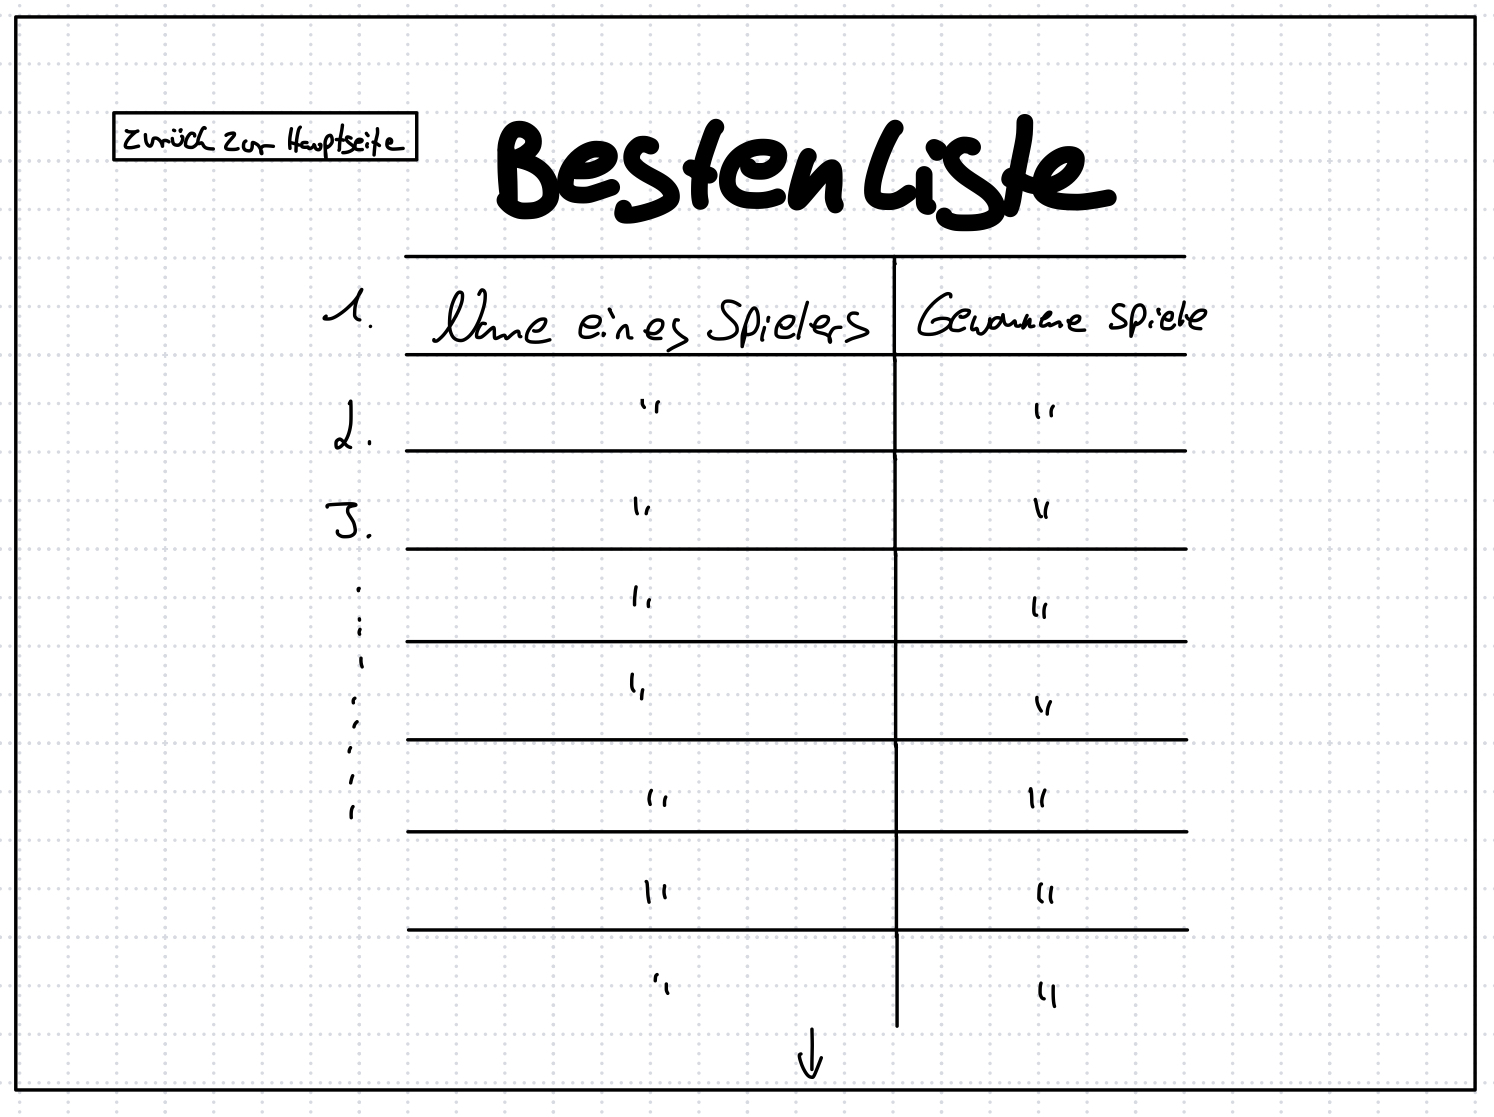 Zurück zur Hauptseite
Bestenliste
1. Name eines Spielers Gewonnene Spiele
2. " "
3. " "
" "
" "
" "
" "
" "